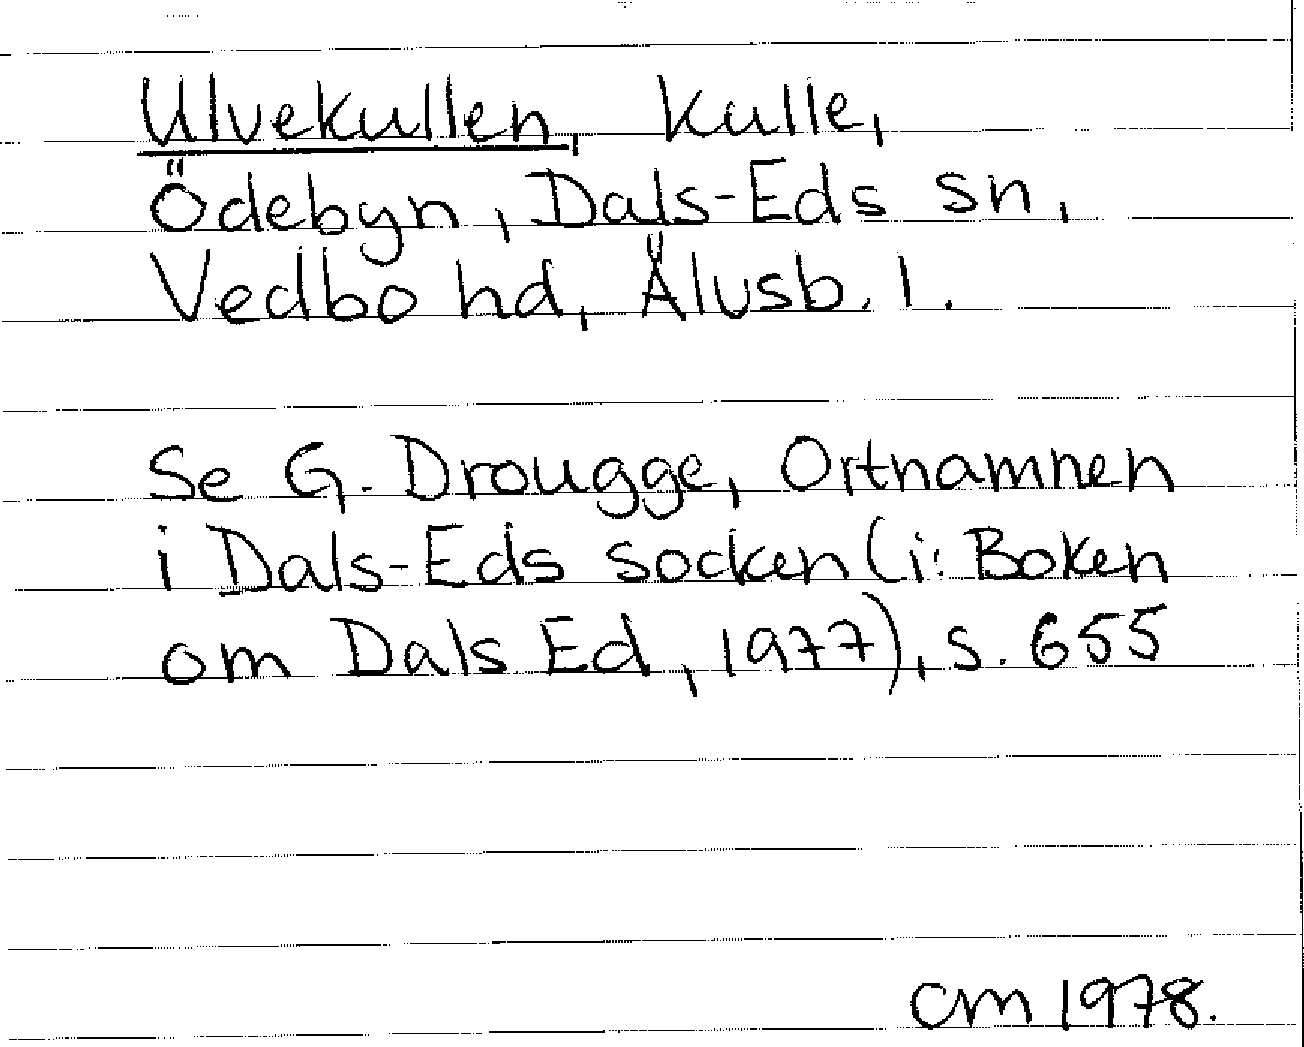 Ulvekullen, kulle,
Ödebyn, Dals-Eds sn,
Vedbo hd, Älvsb. l.
Se G. Drougge, Ortnamnen
i Dals-Eds socken (i: Boken
om Dals Ed, 1977), s. 655
CM 1978.